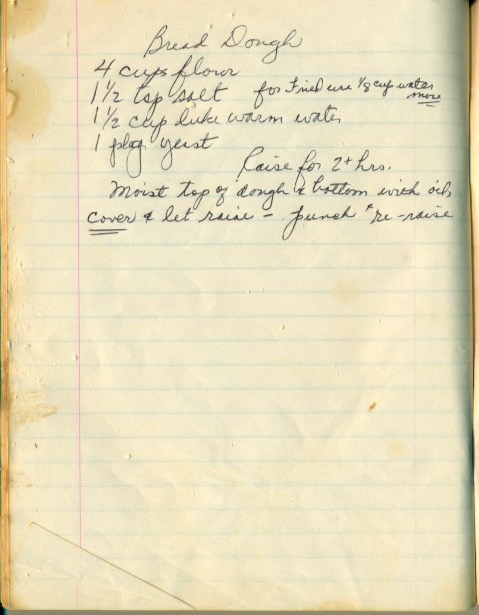 Bread Dough
4 cups flour
1 1/2 tsp salt for Fried use 1/8 cup water more
1 1/2 cup luke warm water
1 pkg yeast
Raise for 2+ hrs.
Moist top of dough & bottom with oil,
cover & let raise - punch & re-raise